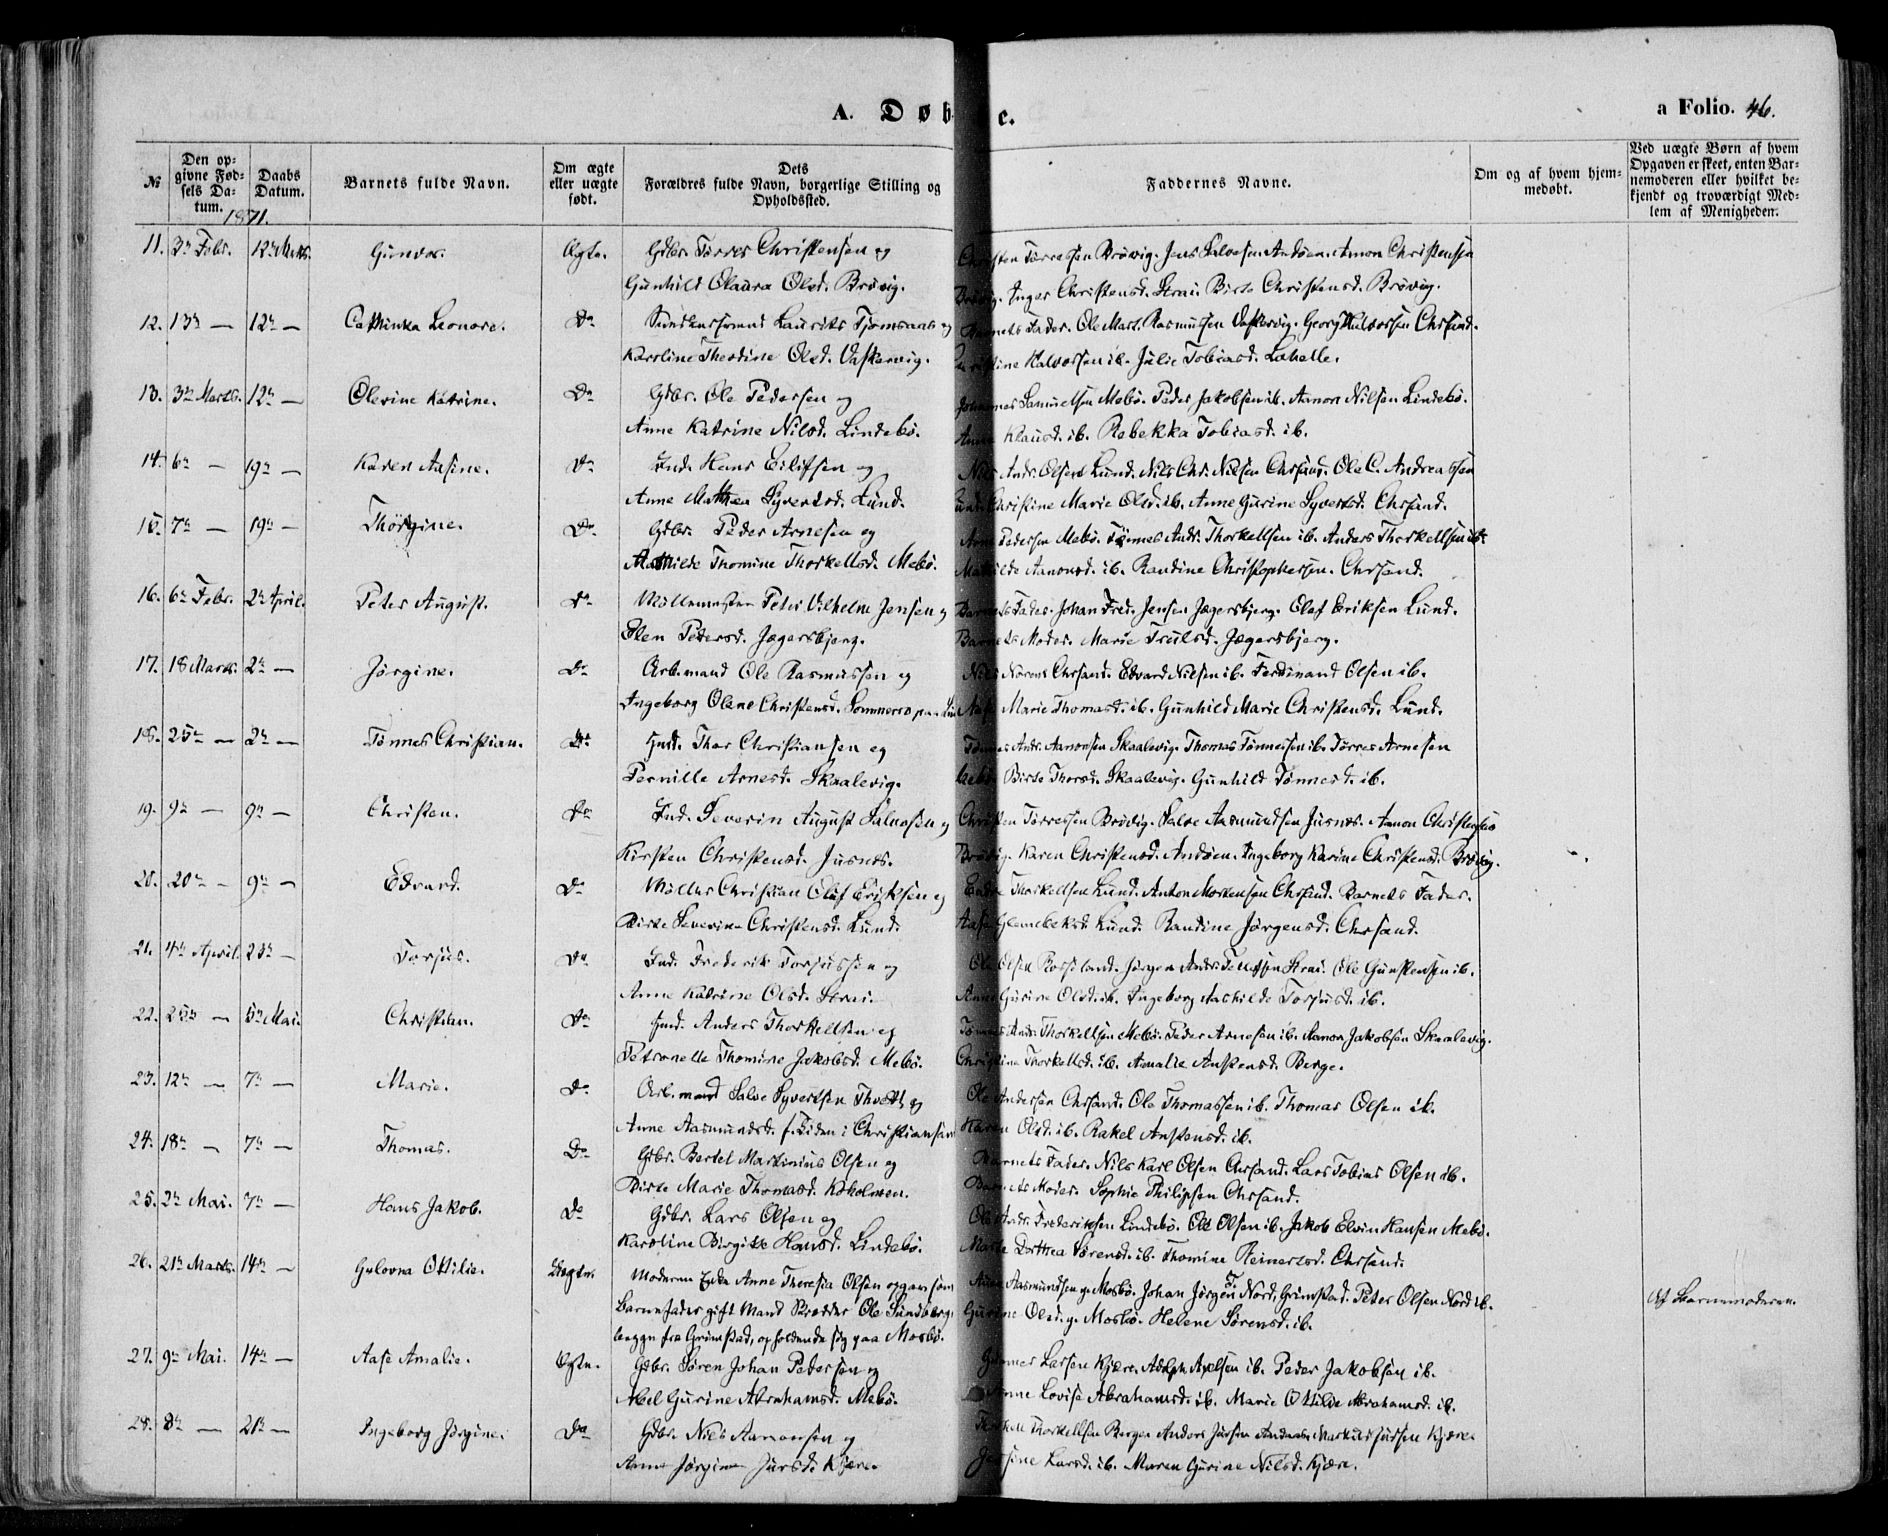 A. Døb
e.
a Folio. 46.
№
Den opgivne Fødsels Datum.
Daabs Datum.
Barnets fulde Navn.
Om ægte eller uægte født.
Dets Forældres fulde Navn, borgerlige Stilling og Opholdssted.
Faddernes Navne.
Om og af hvem hjemmedøbt.
Ved uægte Børn af hvem Opgaven er skeet, enten Barnemoderen eller hvilket bekjendt og troværdigt Medlem af Menigheden.
1871.
11. 3die Febr. 12te Marts. Gunvor. Ægte. Gdbr. Torres Christensen og Christen Torresen Brøvig. Jens Salvesen Andøen. Aanon Christensen
Gunhild Olaura Olsd. Brøvig. Brøvig. Inger Christensd. Strai. Birte Christensd. Brøvig.
12. 13de — 12te — Cathinka Leonore. Do Laurits Tjomsaas og Barnets Fader. Ole Mart. Rasmussen Vaskervig. Georg Halvorsen Chrsand.
Karoline Theodine Olsd. Vaskervig. Halvorsen ib. Julie Tobiasd. Lahelle.
13. 3die Marts. 12te — Olevine Katrine. Do Gdbr. Ole Pedersen og Johannes Samuelsen Mebø. Peder Jakobsen ib. Aanon Nilsen Lindebø.
Anne Katrine Nilsd. Lindebø. Anne Klausd. ib. Rebekka Tobiasd. ib.
14. 6te — 19de — Karen Aasine. Do Ind. Hans Eilifsen og Nils Andr. Olsen Lund. Nils Chr. Nilsen Chrsand. Ole C. Andreassen
Anne Mathea Syvertsd. Lund. Lund. Christine Marie Olsd. ib. Anne Gurine Syvertsd. Chrsand.
15. 7de — 19de — Thørgine. Do Gdbr. Peder Arnesen og Arne Pedersen Mebø. Tønnes Andr. Thorkellsen ib. Anders Thorkellsen ib.
Mathilde Thomine Thorkellsd. Mebø. Mathilde Aanonsd. ib. Randine Christophersen. Chrsand.
16. 6te Febr. 2den April. Peter August. Do Møllemester Peter Vilhelm Jensen og Barnets Fader. Johan Fred. Jensen Jægersbjerg. Olaf Eriksen Lund.
Elen Pedersd. Jægersbjerg. Barnets Moder. Marie Trulsd. Jægersbjerg.
17. 18 Marts. 2den — Jørgine. Do Arb.mand Ole Rasmussen og Nils Chrsand. Edvard Nilsen ib. Ferdinand Olsen ib.
Ingeborg Olene Christensd. Marie Thomasd. ib. Gunhild Marie Christensd. Lund.
18. 25de — 2den — Tønnes Christian. Do Ind. Thor Christiansen og Tønnes Andr. Aanonsen Skaalevig. Thomas Tønnessen ib. Torres Arnesen
Pernille Arnesd. Skaalevig. Mebø. Birte Thorsd. Skaalevig. Gunhild Tønnesd. ib.
19. 9de — 9de — Christen. Do Ind. Severin August Salvesen og Christen Torressen Brøvig. Salve Aasmundsen Jusnes. Aanon Christensen
Kirsten Christensd. Jusnes. Brøvig. Karen Christensd. Andøen. Ingeborg Karine Christensd. Brøvig.
20. 20de — 9de — Edvard. Do Møller Christian Olaf Eriksen og Thorkellsen Lund. Anton Mortensen Chrsand. Barnets Fader.
Birte Severine Christensd. Lund. Aase Lund. Randine Jørgensd. Chrsand.
21. 4de April. 23de — Torjus. Do Ind. Frederik Torjussen og Ole Olsen Rosseland. Jørgen Andr. Strai. Ole Gunstensen ib.
Anne Katrine Olsd. Strai. Anne Gurine Olsd. ib. Ingeborg Aashilde Torjusd. ib.
22. 25de — 5te Mai. Christian. Do Ind. Anders Thorkellsen og Tønnes Andr. Thorkellsen Mebø. Peder Arnesen ib. Aanon Jakobsen Skaalevig.
Petronelle Thomine Jakobsd. Mebø. Christine Thorkellsd. ib. Amalie Anstensd. Berge.
23. 12te — 7de — Marie. Do Arb.mand Salve Syvertsen og Ole Andersen Chrsand. Ole Thomassen ib. Thomas Olsen ib.
Anne Aasmundsd. f. Tiden i Christiansand Karen Olsd. ib. Rakel Anstensd. ib.
24. 18de — 7de — Thomas. Do Gdbr. Bertel Martinius Olsen og Barnets Fader. Nils Karl Olsen Chrsand. Lars Tobias Olsen ib.
Birte Marie Thomasd. Kokolmen. Barnets Moder. Sophie Philipsen Chrsand.
25. 2den Mai. 7de — Hans Jakob. Do Gdbr. Lars Olsen og Ole Andr. Frederiksen Lindebø. Ole Olsen ib. Jakob Elvin Hansen Mebø.
Karoline Birgitte Hansd. Lindebø. Dorthea Sørensd. ib. Thomine Reinertsd. Chrsand.
26. 21de Marts. 14de — Gulovna Ottilie. Uægte. Moderen Enke Anne Theresia Olsen opgav som Aasmundsen Mosbø. Johan Jørgen T. Nord, Grimstad. Peter Olsen Nord ib. Af Barnemoderen.
Barnefader gift Mand Skrædder Ole Sundberg, Gurine Olsd. Mosbø. Helene Sørensd. ib.
begge fra Grimstad, opholdende sig paa Mosbø.
27. 9de Mai. 14de — Aase Amalie. Ægte. Gdbr. Søren Johan Pedersen og Gunner Larsen Kjære. Adolph Axelsen ib. Peder Jakobsen ib.
Abel Gurine Abrahamsd. Mebø. Anne Lovise Abrahamsd. ib. Marie Othilde Abrahamsd. ib.
28. 8de — 21de — Ingeborg Jørgine. Do Gdbr. Nils Aanonsen og Thorkellsen Berge. Anders Jursen Markus Jurssen Kjære.
Anne Jørgine Jursd. Kjære. Larsd. ib. Maren Gurine Nilsd. Kjære.